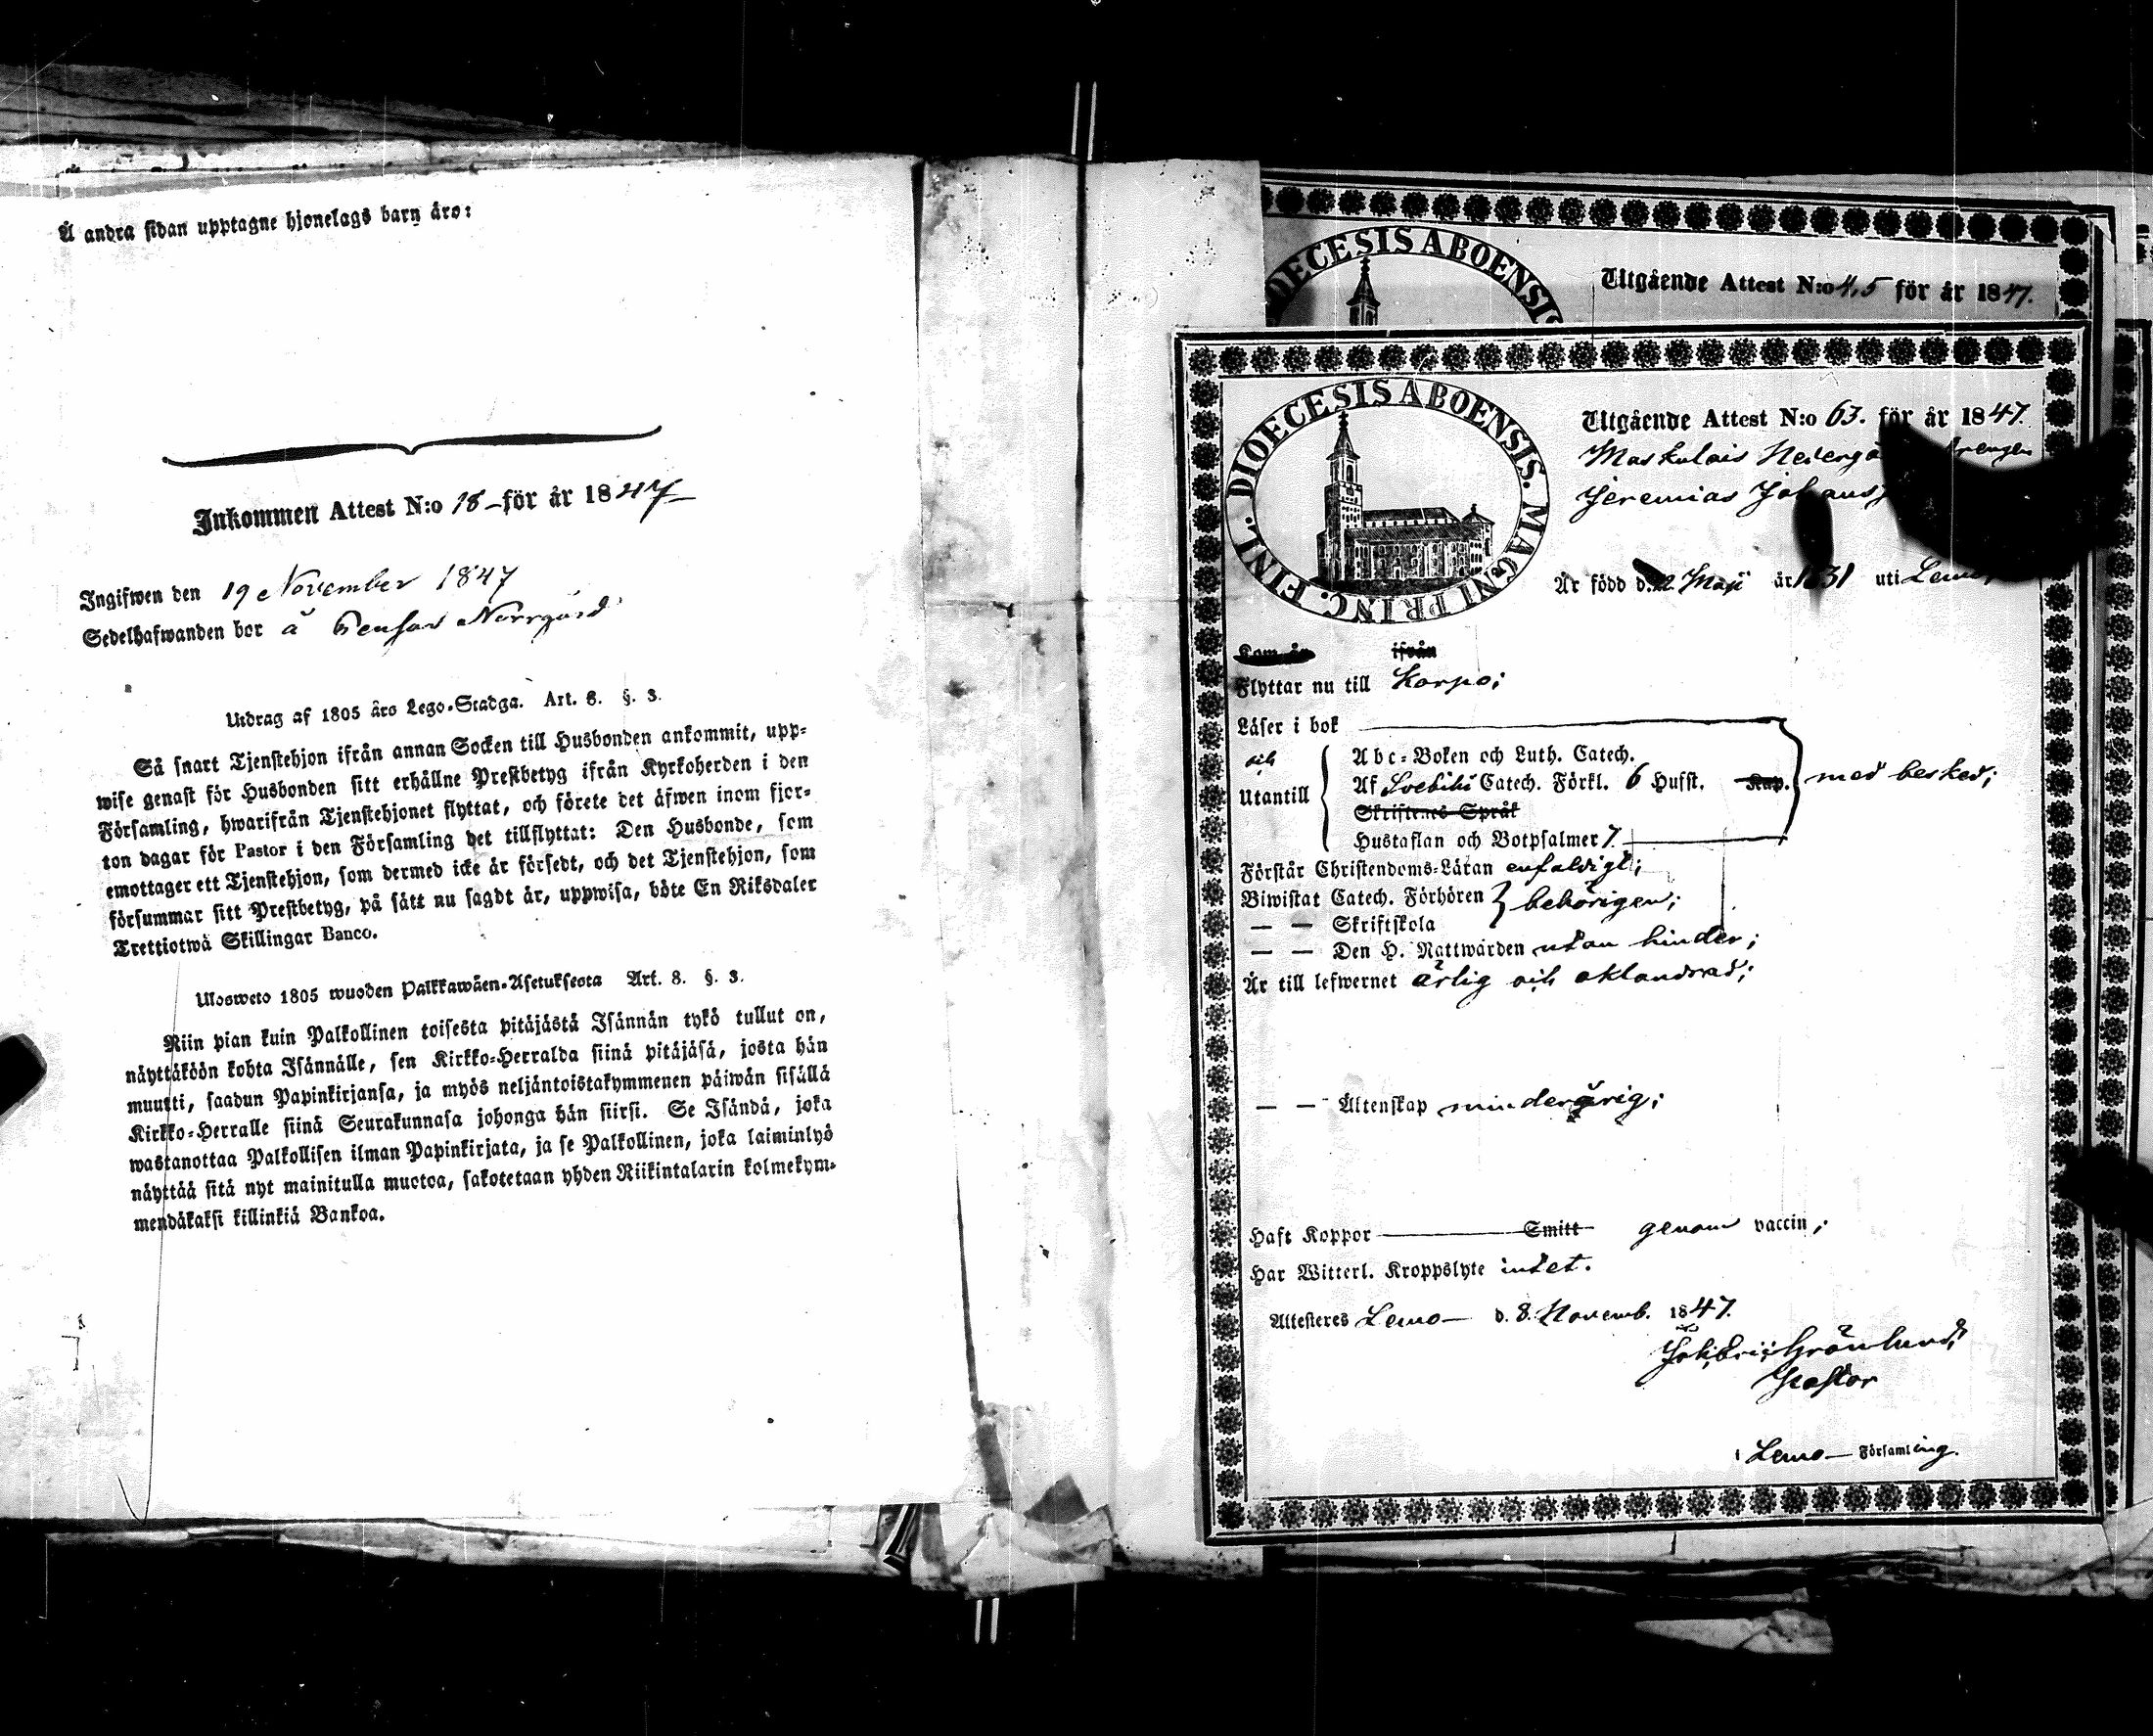 Å andra sidan upptagne hjonelags barn äro:
Inkommen Attest N:o 18 – för år 1847 –
Ingifwen den 19 November 1847
Sedelhafwanden bor å Norrgård
Utdrag af 1805 års Lego-Stadga. Art. 8. §. 3.
Så snart Tjenstehjon ifrån annan Socken till Husbonden ankommit, upp-
wise genast för Husbonden sitt erhållne Prestbetyg ifrån Kyrkoherden i den
Församling, hwarifrån Tjenstehjonet flyttat, och förete det äfwen inom fjor-
ton dagar för Pastor i den Församling det tillflyttat: Den Husbonde, som
emottager ett Tjenstehjon, som dermed icke är försedt, och det Tjenstehjon, som
försummar sitt Prestbetyg, på sätt nu sagdt är, uppwisa, böte En Riksdaler
Trettiotwå Skillingar Banco.
Ulosweto 1805 wuoden Palkkawäen-Asetuksesta Art. 8. §. 3.
Niin pian kuin Palkollinen toisesta pitäjästä Isännän tykö tullut on,
näyttäköön kohta Isännälle, sen Kirkko-Herralda siinä pitäjäsä, josta hän
muutti, saadun Papinkirjansa, ja myös neljäntoistakymmenen päiwän sisällä
Kirkko-Herralle siinä Seurakunnasa johonga hän siirsi. Se Isändä, joka
wastanottaa Palkollisen ilman Papinkirjata, ja se Palkollinen, joka laiminlyö
näyttää sitä nyt mainitulla muotoa, sakotetaan yhden Riikintalarin kolmekym-
mendäkaksi killinkiä Bankoa.
DIOECESIS ABOENSIS
Utgående Attest N:o 45 för år 1847.
DIOECESIS ABOENSIS. MAGNI PRINC. FINL.
Utgående Attest N:o 63. för år 1847.
Maskulais
Jeremias
Är född d. 22 Maji år 1831 uti Lemo,
Kom år ifrån
Flyttar nu till Korpo;
Läser i bok
och
Utantill
Abc-Boken och Luth. Catech.
Af Svebilii Catech. Förkl. 6 Hufst. Kap. med besked;
Skriftenes Språk
Hustaflan och Botpsalmer 7.
Förstår Christendoms-Läran enfaldigt;
Biwistat Catech. Förhören behörigen;
— — Skriftskola
— — Den H. Nattwarden utan hinder;
Är till lefwernet ärlig och oklandrad;
— — Äktenskap minderårig;
Haft Koppor Smitt genom vaccin;
Har Witterl. Kroppslyte intet.
Attesteres Lemo – d. 8. Novemb. 1847.
Grönlund,
Pastor
i Lemo – Församling.